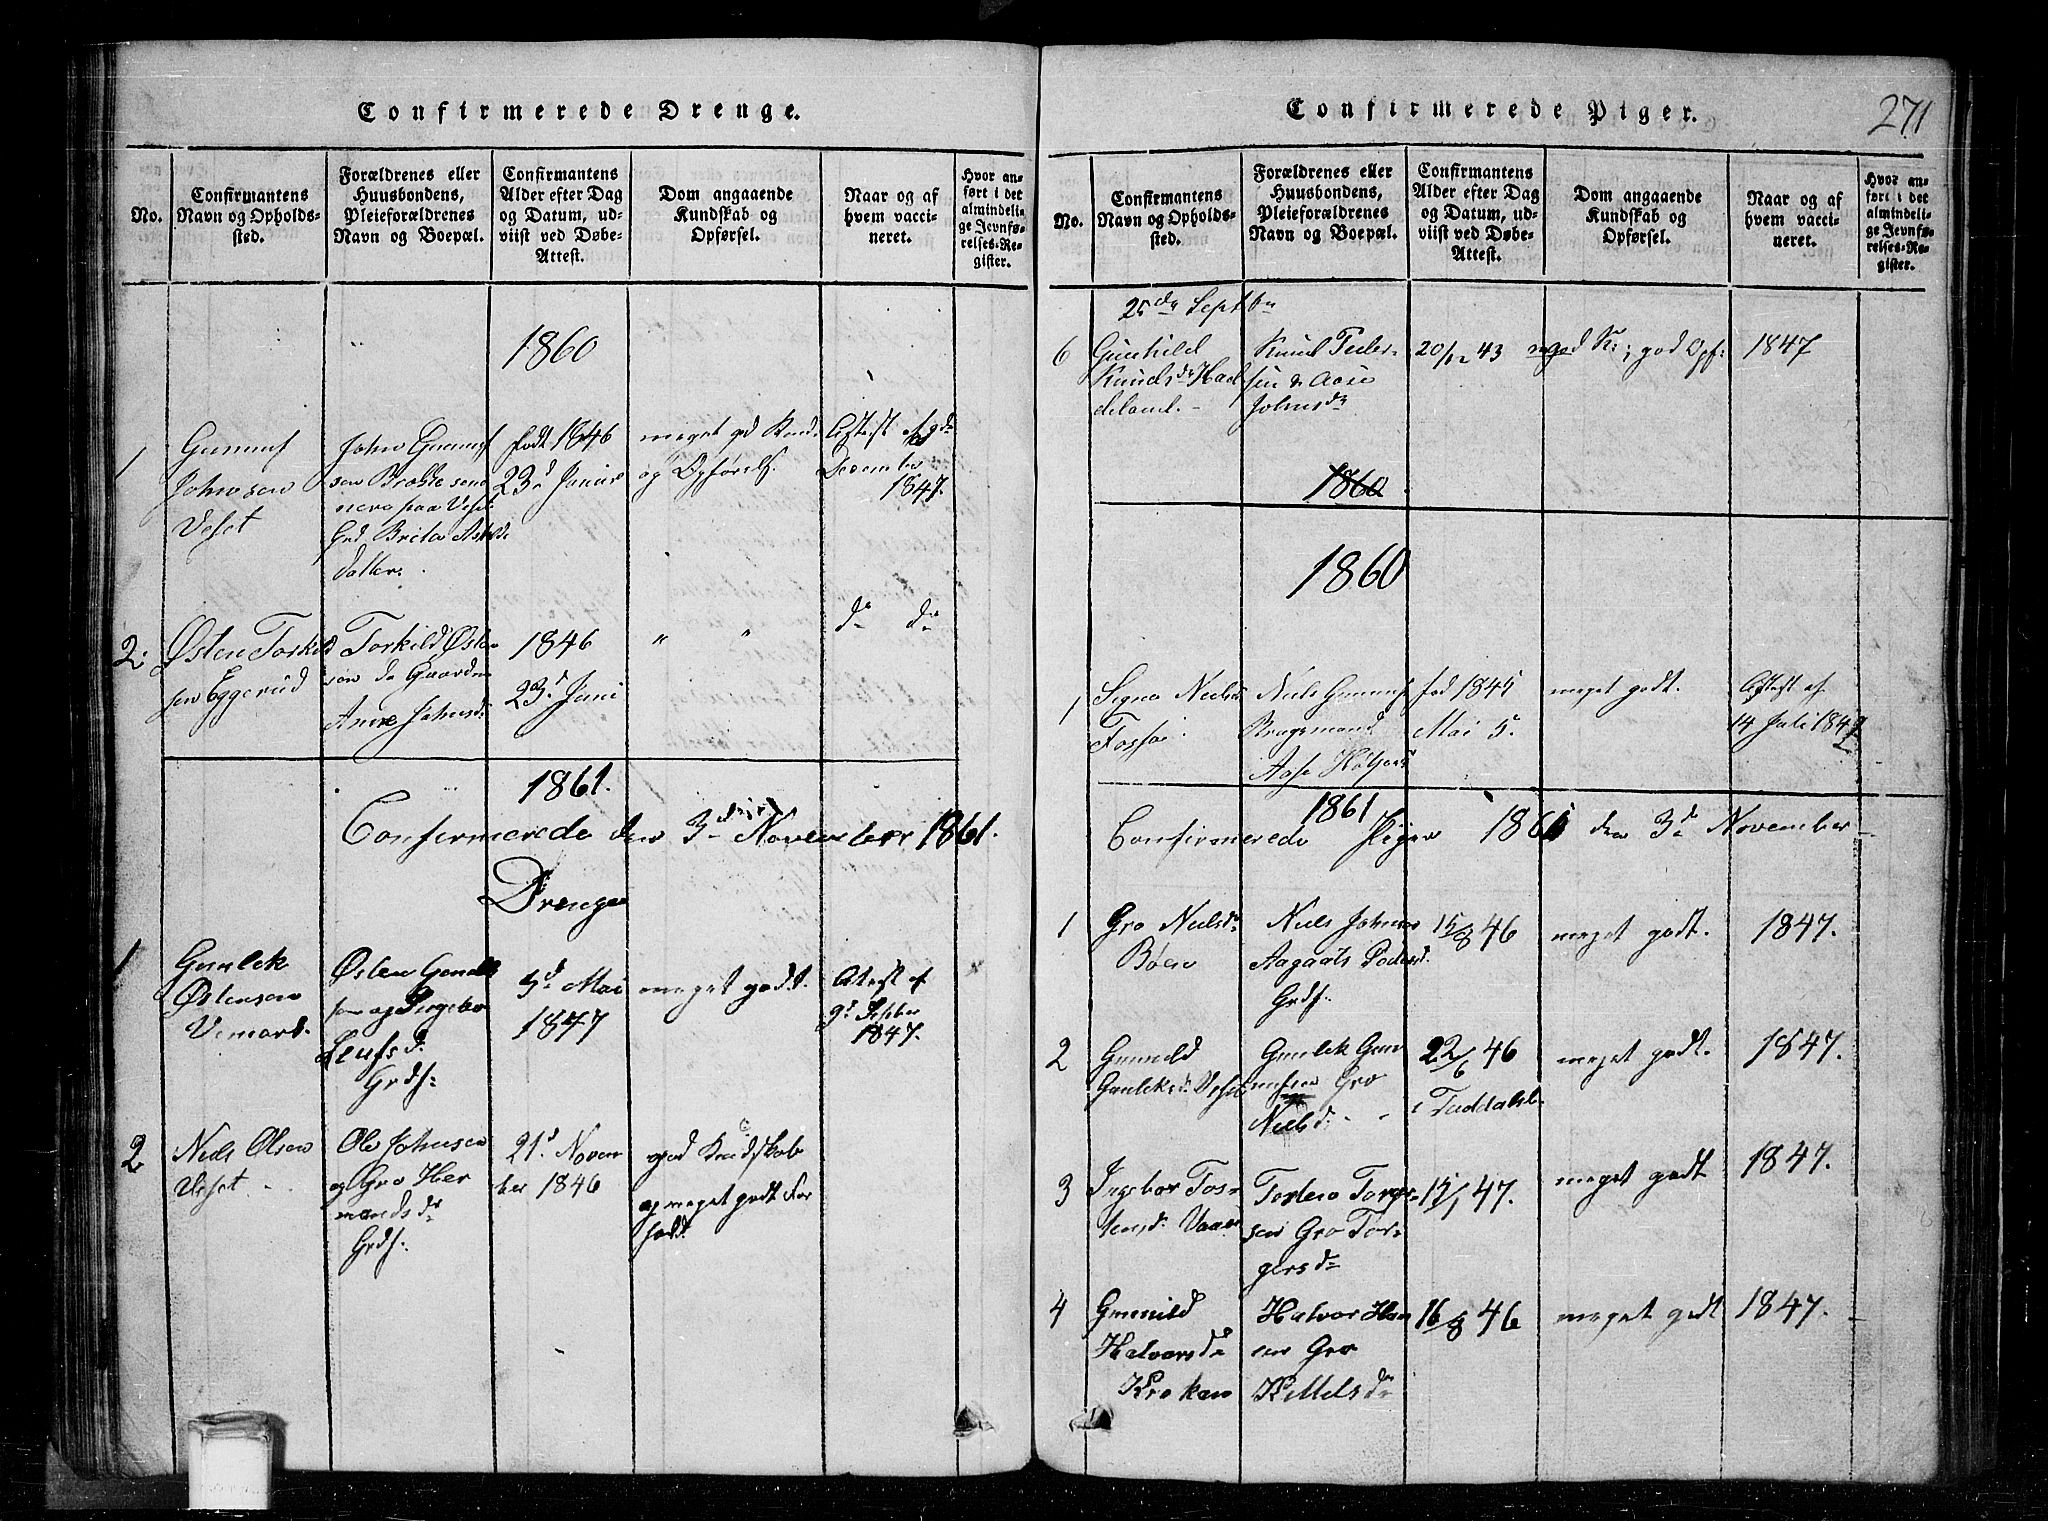 Confirmerede Drenge.
No.
Confirmantens
Navn og Opholds-
sted.
Forældrenes eller
Huusbondens,
Pleieforældrenes
Navn og Boepæl.
Confirmantens
Alder efter Dag
og Datum, ud-
viist ved Døbe-
Attest.
Dom angaaende
Kundskab og
Opførsel.
Naar og af
hvem vacci-
neret.
Hvor an-
ført i det
almindeli-
ge Jevnfø-
relses-Re-
gister.
1860
1
Gunnuf
Johnsen
Veset
John Gunnuf
sen
paa
datter.
født 1846
23d
meget god
og Opførsel.
Attest af
December
1847.
2.
Østen Torkild
sen Eggerud
Torkild Østen
Anne Johnsd.
1846
23d Juni
" "
do do
1861.
Confirmerede den 3d November 1861.
Drenge
1
Gunlek
Østensen
Østen Gunlek
sen og Ingebor
Grdf.
3d Mai
1847
meget godt.
Attest af
9d Septber
1847.
2
Niels Olsen
Veset
Ole Johnsen
og Gro Her
mands dr
Grdf.
21d Novem
ber 1846
god Kundskab
og meget godt For
hold.
Confirmerede Piger.
271
No.
Confirmantens
Navn og Opholds-
sted.
Forældrenes eller
Huusbondens,
Pleieforældrenes
Navn og Boepæl.
Confirmantens
Alder efter Dag
og Datum, ud-
viist ved Døbe-
Attest.
Dom angaaende
Kundskab og
Opførsel.
Naar og af
hvem vacci-
neret.
Hvor an-
ført i det
almindeli-
ge Jevnfø-
relses-Re-
gister.
25de Septbr
6
Gunhild
Knudsdr Had
deland.
Knud Peder-
sen & Aase
Johnsdr
20/12 43
god K:; god Opf:
1847
1860
1860
1
Signe Nielsd
Niels Gunnuf
Aase
fød 1845
Mai 5.
meget godt.
Attest af
14 Juli 1847
1861
Confirmerede Piger 1861 den 3d November
1
Gro Nielsdr
Bøen
Niels Johnsen
Aagaat Pedersd.
Grdf.
15/8 46
meget godt.
1847.
2
Gunnild
Gunleksdr Veset
Gunlek Gun
nufsen Gro
Nielsd.
22/6 46
i
meget godt.
1847.
3
Ingebor Tos-
tensd.
Tosten Torger
sen Gro Tor-
gersdr
17/1 47.
meget godt
1847.
4
Gunnild
Halvorsdr
Kroken
Halvor Han
sen Gro
Kittelsdr
16/8 46
meget godt
1847.